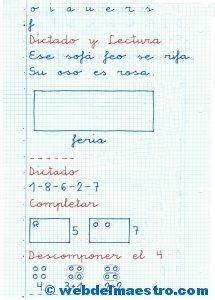 o i a u e r s
f
Dictado y Lectura
Ese sofá feo se rifa.
Su oso es rosa.
feria
Dictado
1-8-6-2-7
Completar
5 7
Descomponer el 4
4 3+1 2+2
© webdelmaestro.com